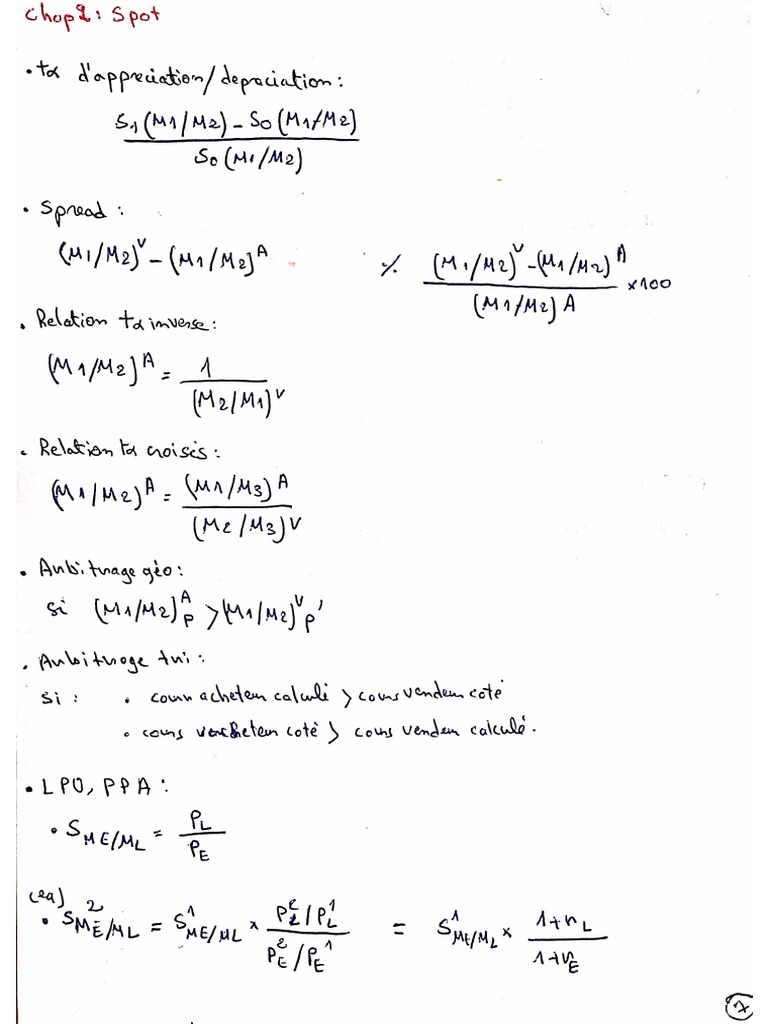 Chap 2: Spot
• tx d'appreciation/depreciation:
S1 (M1/M2) - S0 (M1/M2)
S0 (M1/M2)
• Spread:
(M1/M2)^V - (M1/M2)^A % (M1/M2)^V - (M1/M2)^A / (M1/M2)^A ×100
• Relation tx inverse:
(M1/M2)^A = 1 / (M2/M1)^V
• Relation tx croisés:
(M1/M2)^A = (M1/M3)^A / (M2/M3)^V
• Arbitrage géo:
si (M1/M2)^A_P > (M1/M2)^V_P'
• Arbitrage tri:
si: • cours acheteur calculé > cours vendeur coté
• cours acheteur coté > cours vendeur calculé.
• LPU, PPA:
• S_ME/ML = P_L / P_E
• S^2_ME/ML = S^1_ME/ML × (P^2_L / P^1_L) / (P^2_E / P^1_E) = S^1_ME/ML × (1+r_L) / (1+r_E)